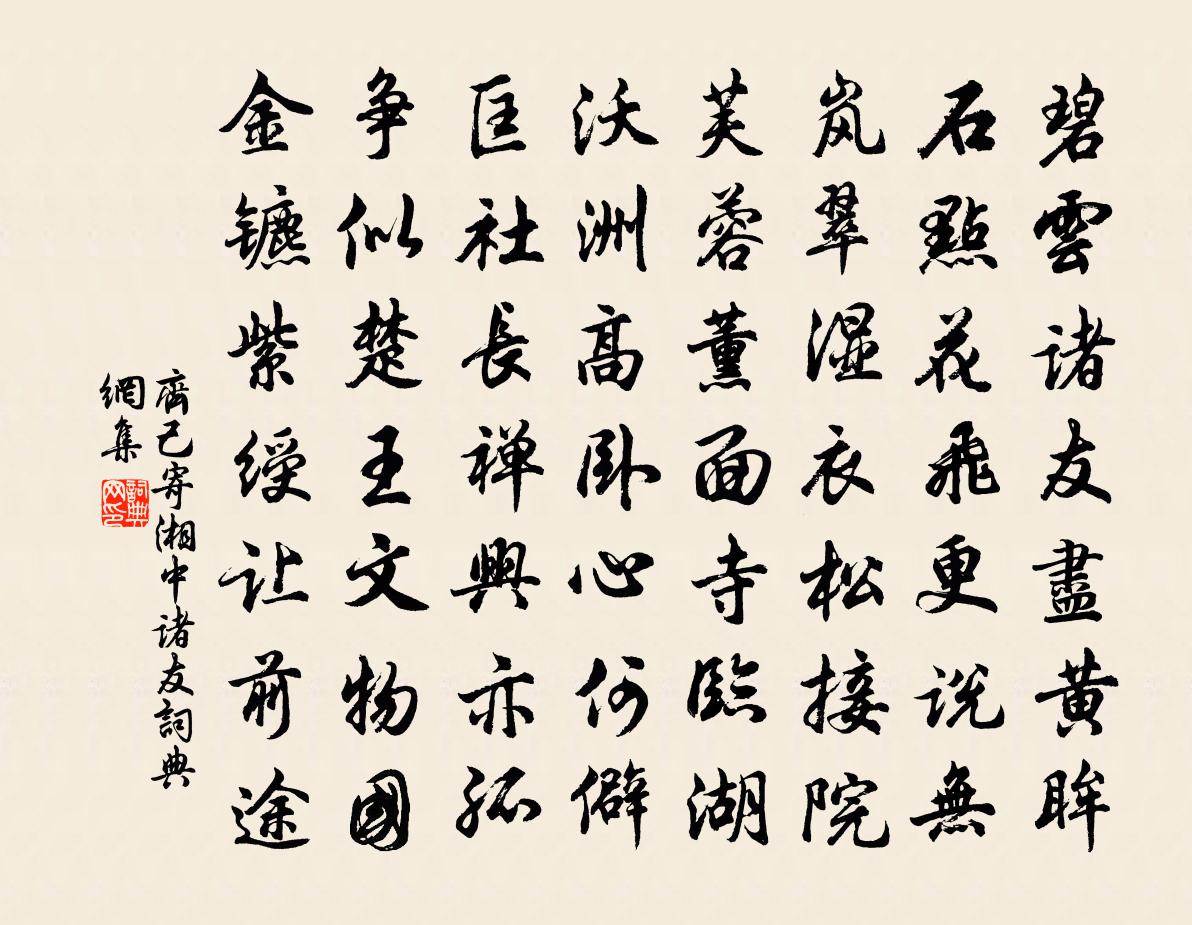 碧雲諸友盡黄眸
石點花飛更说無
岚翠湿衣松接院
芙蓉薰面寺臨湖
沃洲高卧心何僻
匡社長禅興亦孤
争似楚王文物國
金镳紫綬让前途
齊己寄湘中诸友詞典
網集
詞典
网印